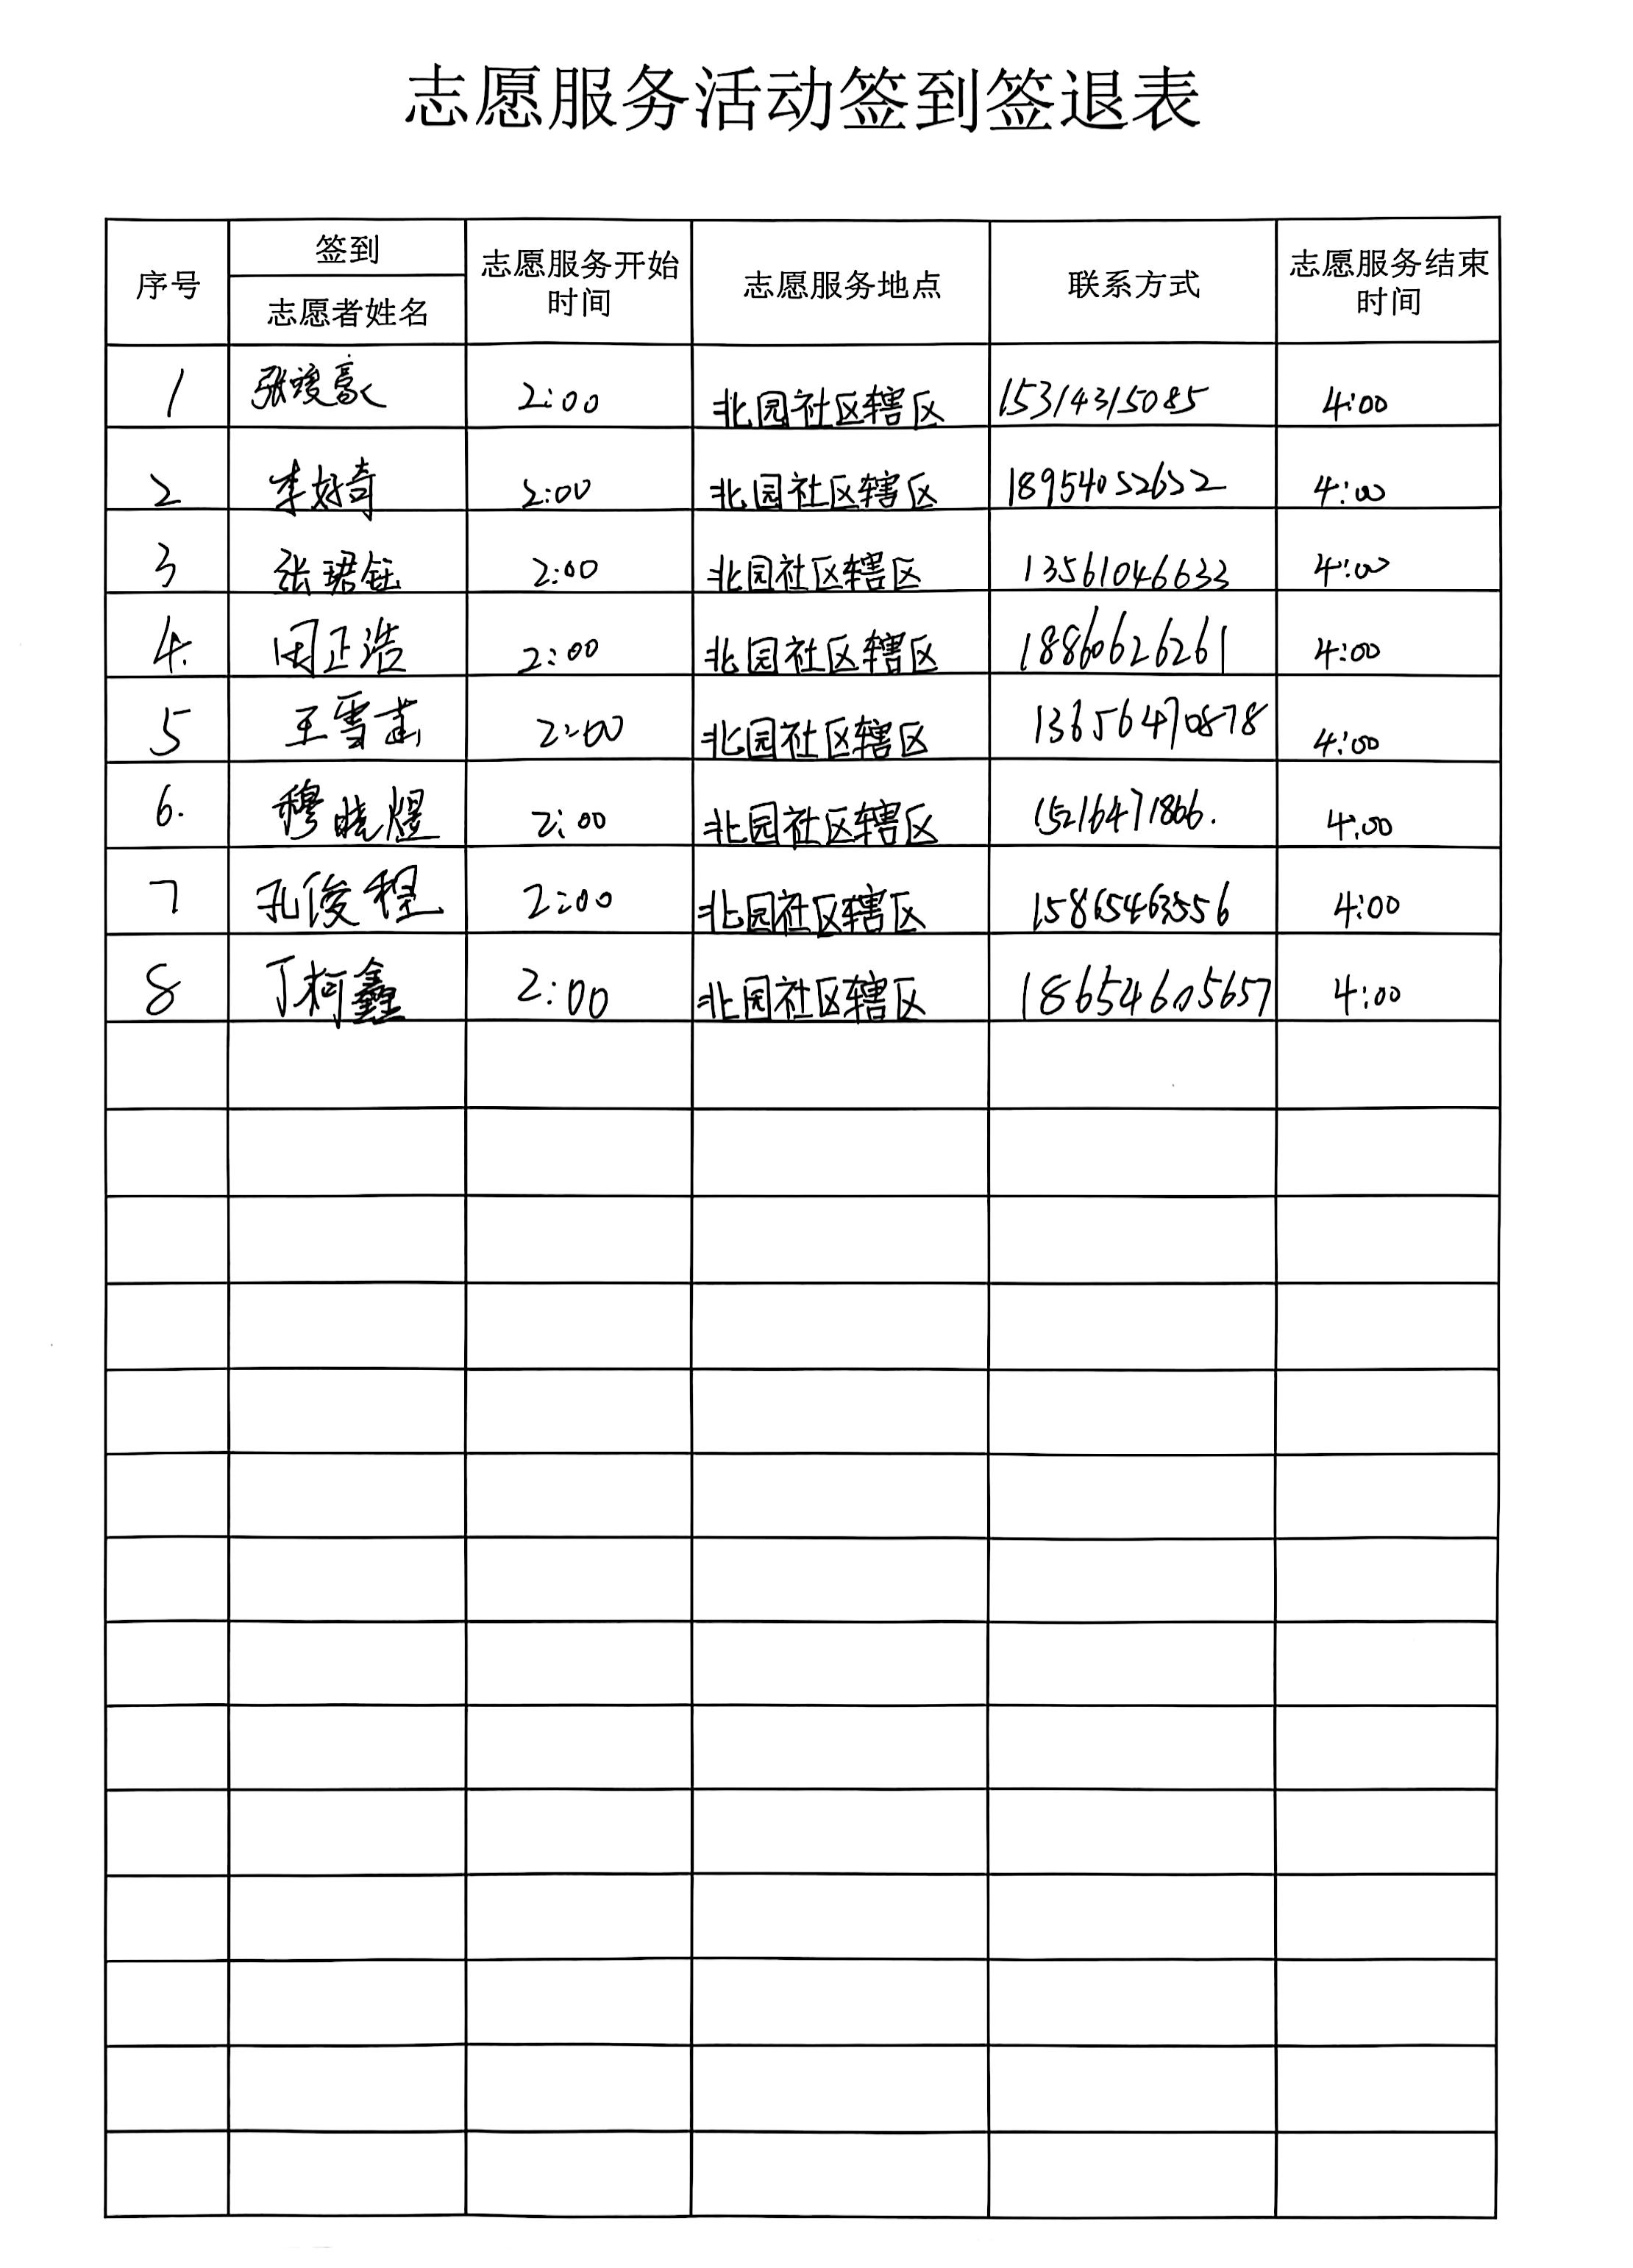 志愿服务活动签到签退表
序号 签到 志愿者姓名 志愿服务开始时间 志愿服务地点 联系方式 志愿服务结束时间
1 张竣豪 2:00 北园社区辖区 15314315085 4:00
2 李好奇 2:00 北园社区辖区 18954052652 4:00
3 张珺钰 2:00 北园社区辖区 13561046633 4:00
4. 周正浩 2:00 北园社区辖区 18860626261 4:00
5 王雪 2:00 北园社区辖区 13656470878 4:00
6. 穆晓煜 2:00 北园社区辖区 15216471806. 4:00
7 孔俊程 2:00 北园社区辖区 15865463556 4:00
8 丁柯鑫 2:00 北园社区辖区 18654605657 4:00